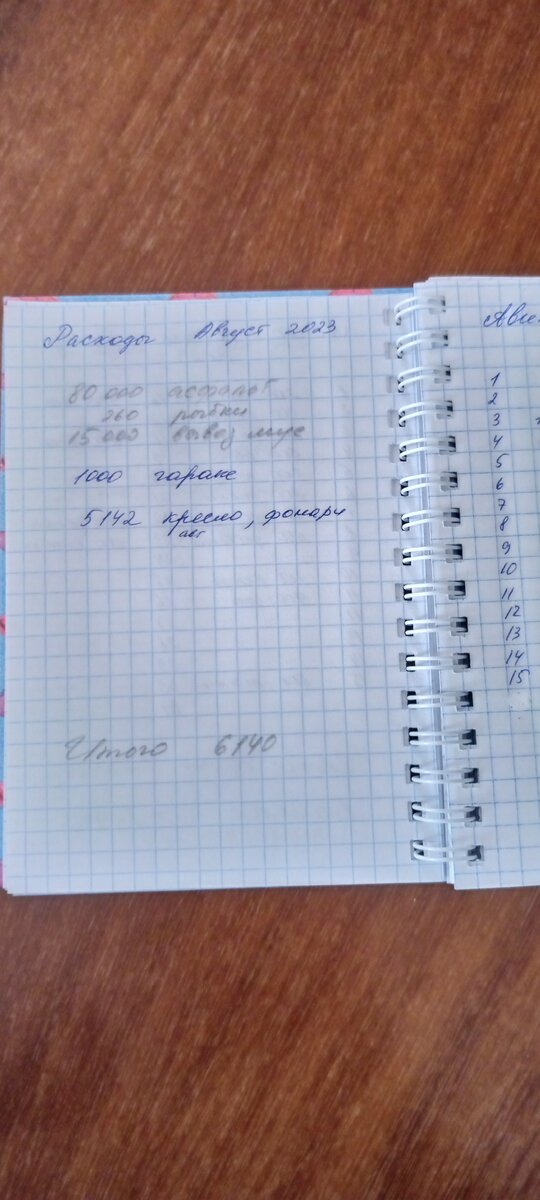 Расходы Август 2023
80 000 асфальт
260 рыбки
15 000 вывоз мус
1000 гараж
5142 кресло, фонари
авт
Итого 6140
1
2
3
4
5
6
7
8
9
10
11
12
13
14
15